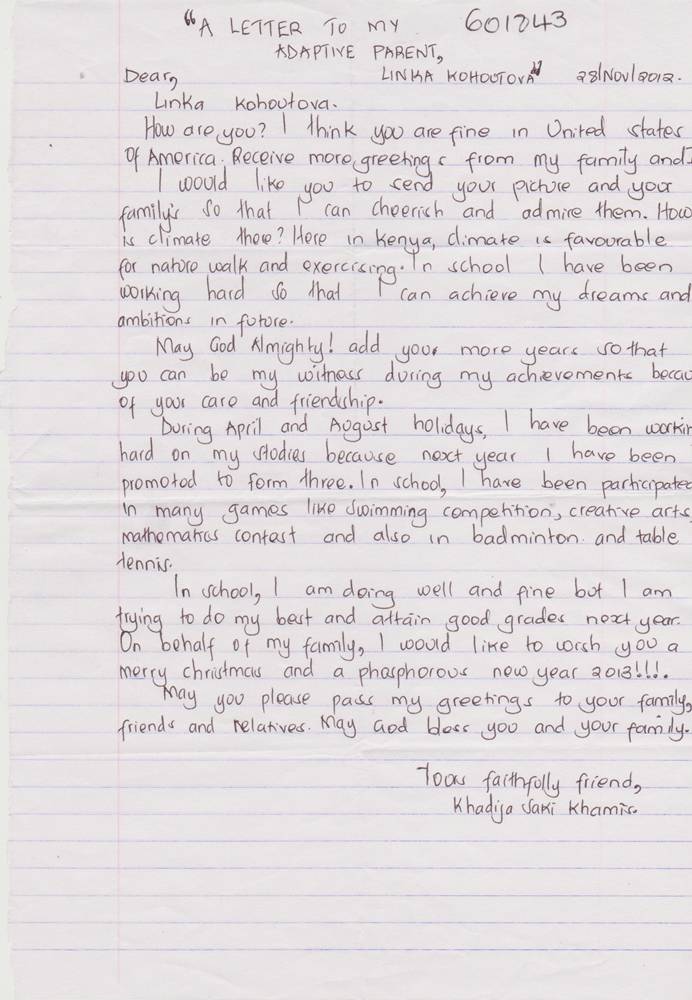 "A LETTER TO MY 601843
ADAPTIVE PARENT,
Dear, LINKA KOHOUTOVA" 28/NOV/2012.
Linka Kohoutova.
How are you? I think you are fine in United states
Of America. Receive more greetings from my family and I
I would like you to send your picture and your
family's so that I can cheerish and admire them. How
is climate there? Here in Kenya, climate is favourable
for nature walk and exercising. In school I have been
working hard so that I can achieve my dreams and
ambitions in future.
May God Almighty! add your more years so that
you can be my witness during my achievements becau
of your care and friendship.
During April and August holidays, I have been workin
hard on my studies because next year I have been
promoted to form three. In school, I have been participated
in many games like swimming competition, creative arts,
mathematics contest and also in badminton. and table
tennis.
In school, I am doing well and fine but I am
trying to do my best and attain good grades next year.
On behalf of my family, I would like to wish you a
merry christmas and a phosphorous new year 2013!!!.
May you please pass my greetings to your family,
friends and relatives. May God bless you and your family.
Yours faithfully friend,
Khadija Saki Khamis.